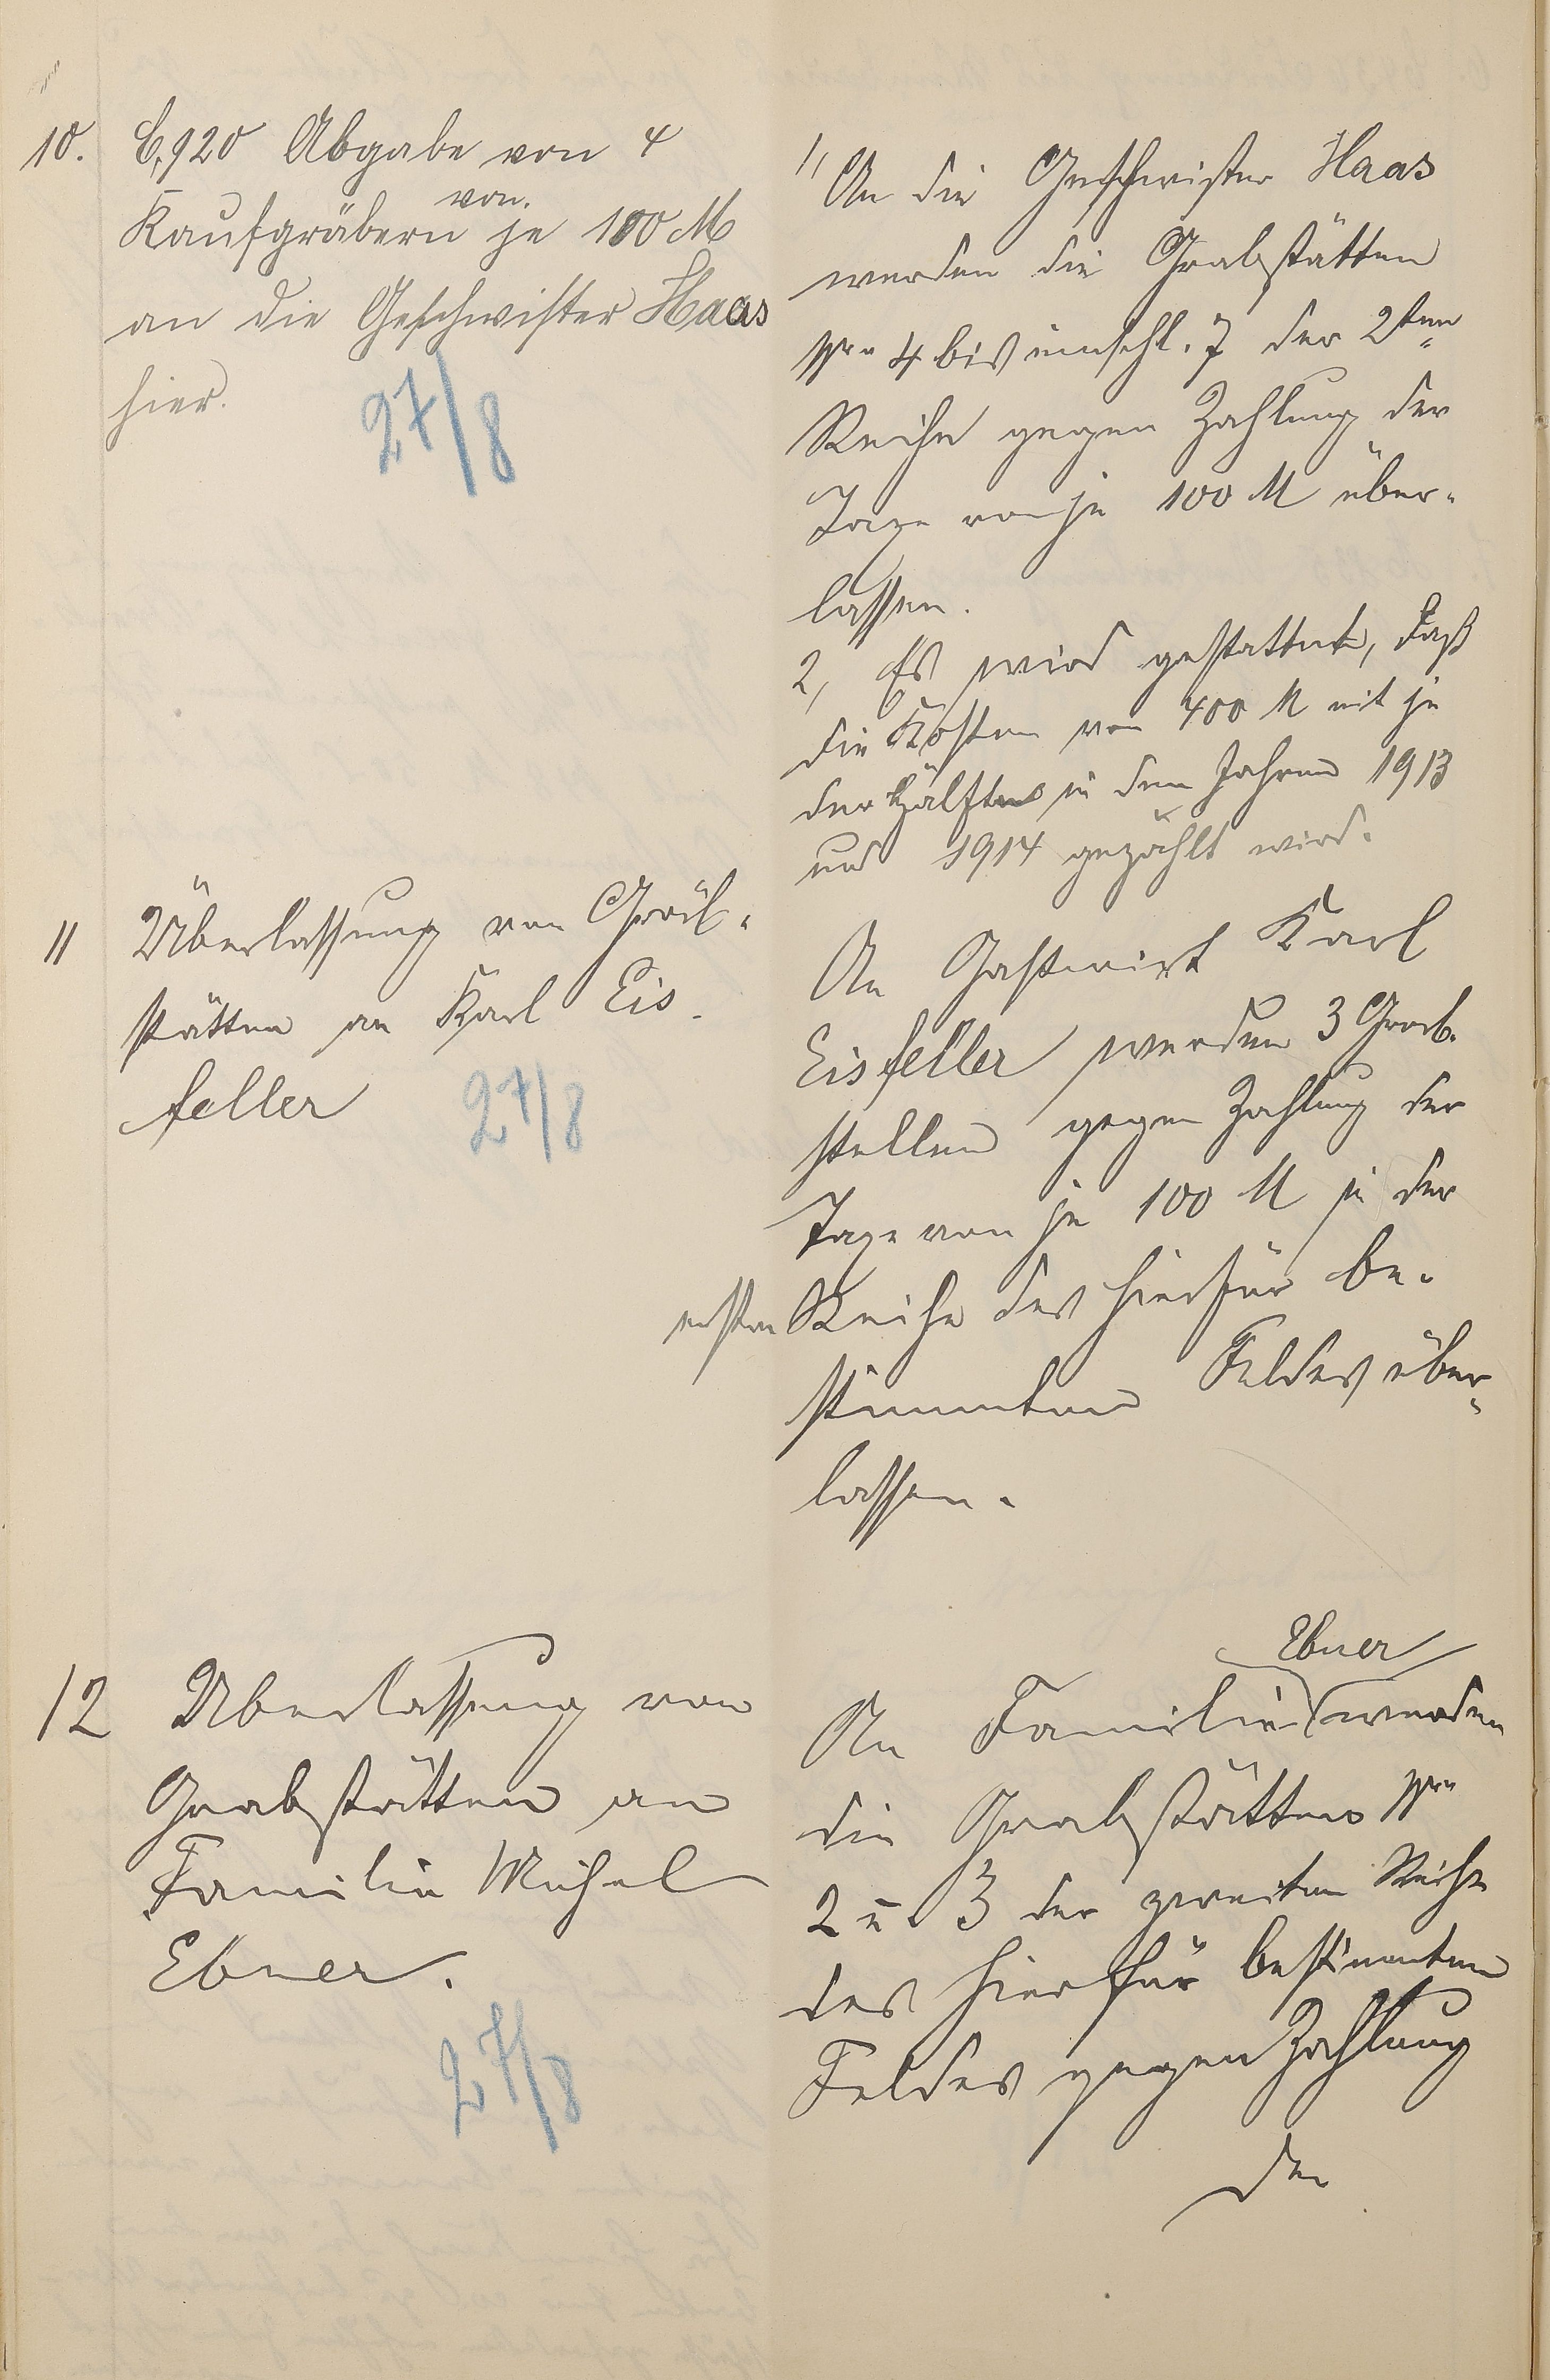 10. C. 920 Abgabe von 4
Kaufgräbern von je 100 M
an die Geschwister Haas
hier.
27/8
1, An die Geschwister Haas
werden die Grabstätten
Nro 4 bis einschl. 7 der 2ten
Reihe gegen Zahlung der
Taxe von je 100 M über-
lassen.
2, Es wird gestattet, daß
die Kosten von 400 M mit je
der Hälfte in den Jahren 1913
und 1914 gezahlt wird.
11 Überlassung von Grab-
stätten an Karl Eis-
feller
27/8
An Gastwirt Karl
Eisfeller werden 3 Grab-
stellen gegen Zahlung der
Taxe von je 100 M in der
ersten Reihe des hierfür be-
stimmten Feldes über-
lassen.
12 Überlassung von
Grabstätten an
Familie Michel
Ebner.
27/8
Ebner
An Familie werden
die Grabstätten Nro
2 u 3 der zweiten Reihe
des hierfür bestimmten
Feldes gegen Zahlung
der